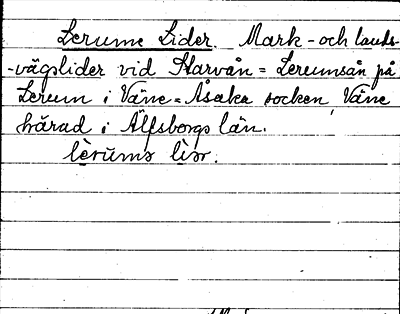 Lerums Lider. Mark-och lands-
-vägslider vid Starvån = Lerumsån på
Lerum i Väne-Åsaka socken, Väne
härad i Älfsborgs län.
lèrums lìər.